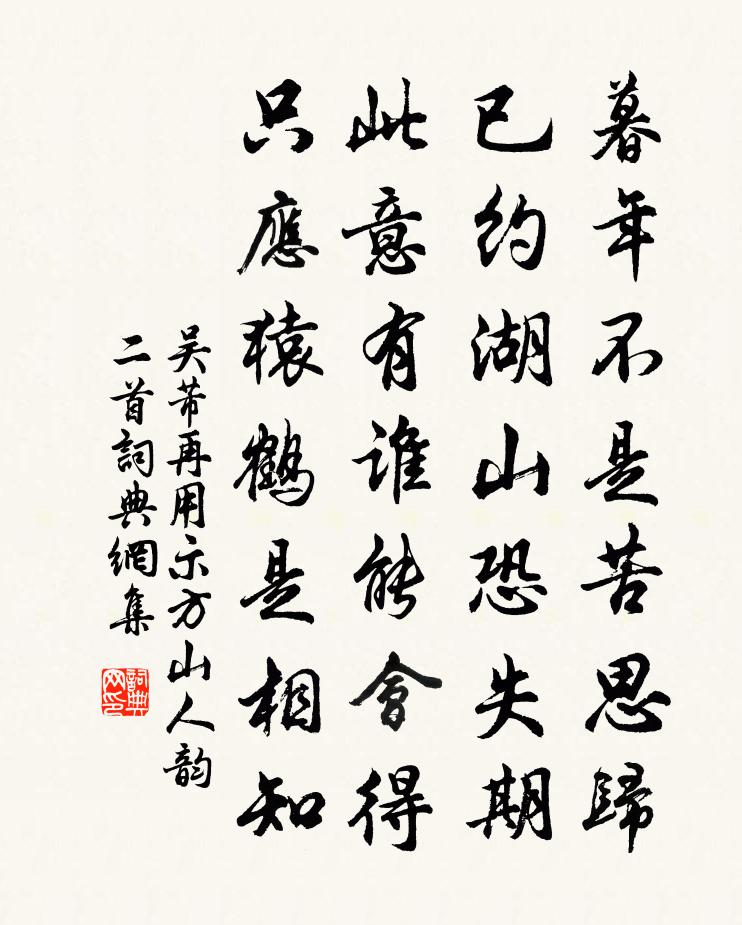 暮年不是苦思歸
已約湖山恐失期
此意有谁能會得
只應猿鶴是相知
吴芾再用示方山人韵
二首詞典網集
詞典網印